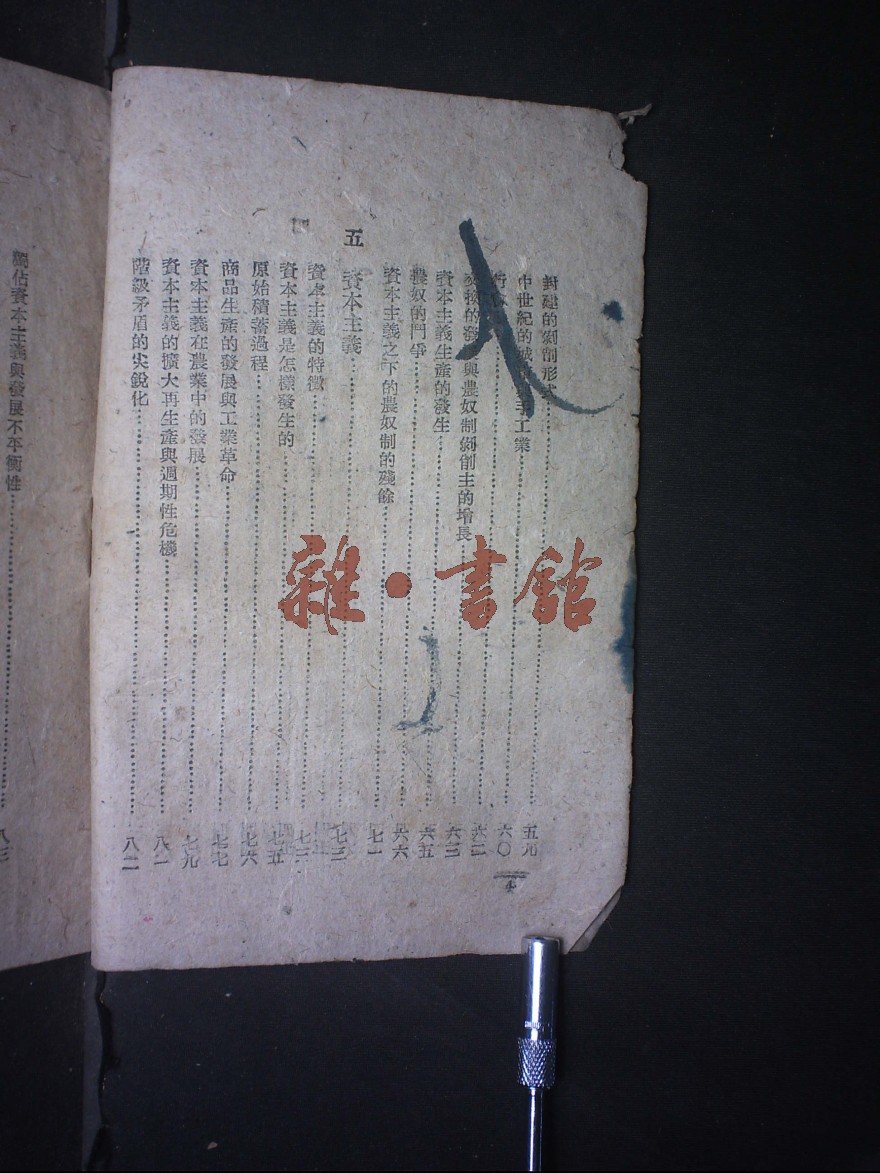 封建的剝削形式……五九
中世紀的城市與手工業……六〇
行會……六二
交換的發展與農奴制剝削主的增長……六三
資本主義生產的發生……六五
農奴的鬥爭……六六
資本主義之下的農奴制的殘餘……七一
五 資本主義……七三
資本主義的特徵……七三
資本主義是怎樣發生的……七五
原始積蓄過程……七六
商品生產的發展與工業革命……七七
資本主義在農業中的發展……七九
資本主義的擴大再生產與週期性危機……八一
階級矛盾的尖銳化……八二
4
獨佔資本主義與發展不平衡性……八三
雜·書館